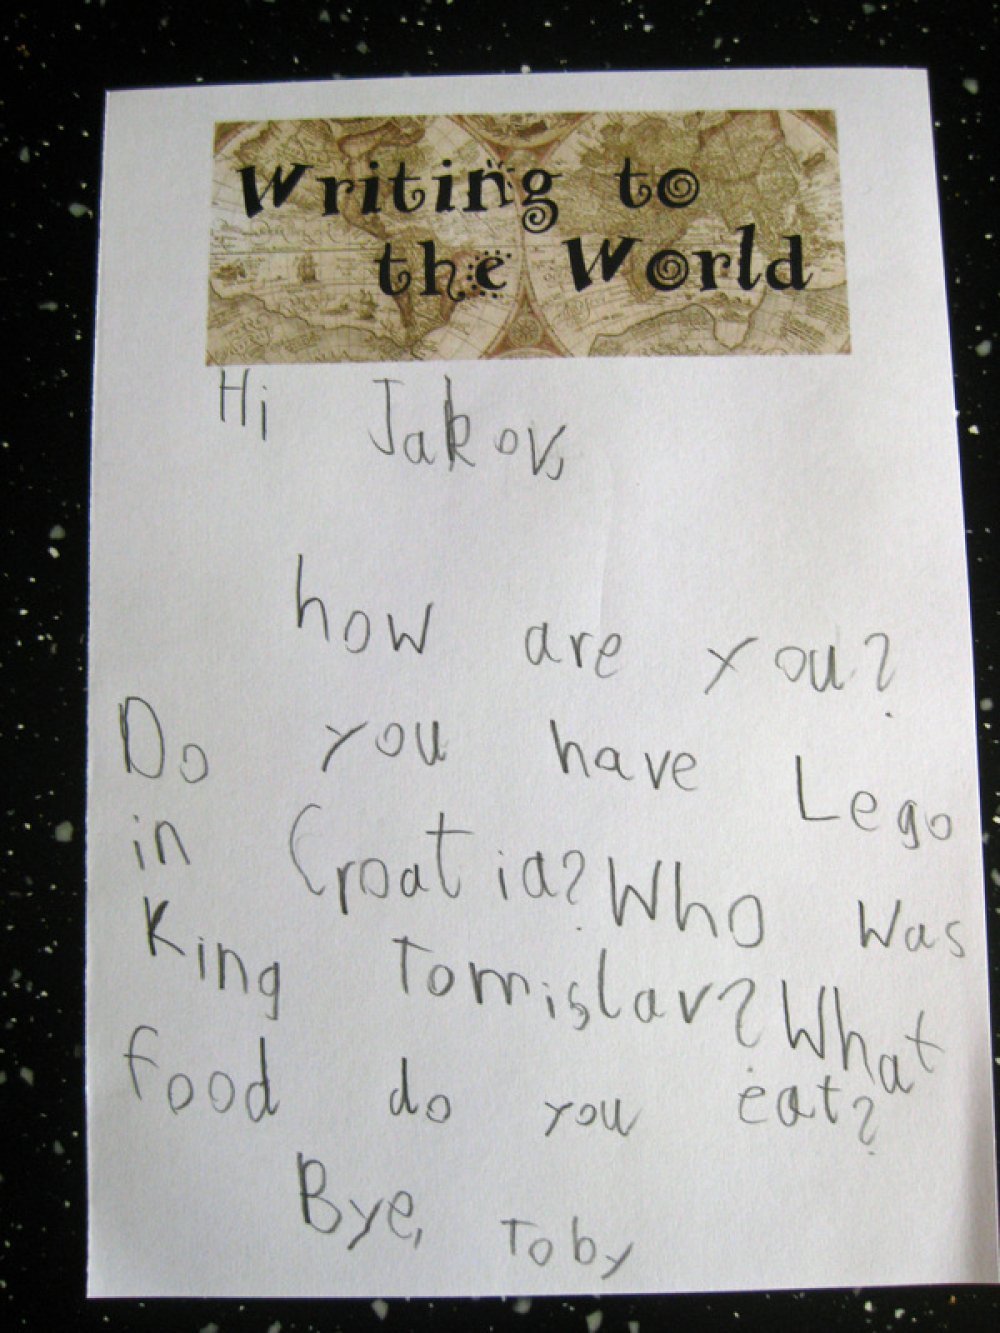 Writing to
the World
Hi Jakov,
how are you?
Do you have Lego
in Croatia? Who was
King Tomislav? What
food do you eat?
Bye, Toby